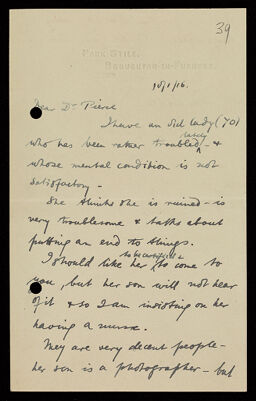 39
PARK STILE,
BROUGHTON-IN-FURNESS.
10/1/16.
Dear Dr Pierce
I have an old lady (70)
who has been rather troubled lately - &
whose mental condition is not
satisfactory -
She thinks she is ruined - is
very troublesome & talks about
putting an end to things.
I should like her to be certified & to come to
you, but her son will not hear
of it & so I am insisting on her
having a nurse.
They are very decent people -
her son is a photographer - but